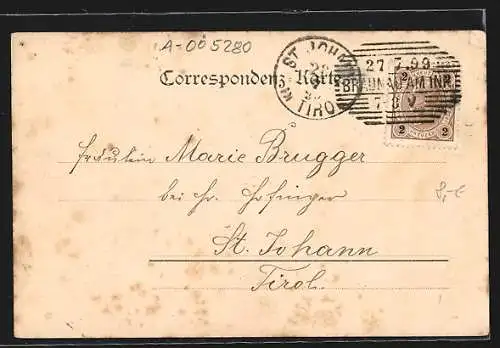 A-005280
Correspondenz-Karte
ST. JOHANN
TIROL
27.7.99
BRAUNAU AM INN
7-8 V
2 2
2 2
Fräulein Marie Brugger
bei Hr.
8,-€
St. Johann
Tirol.